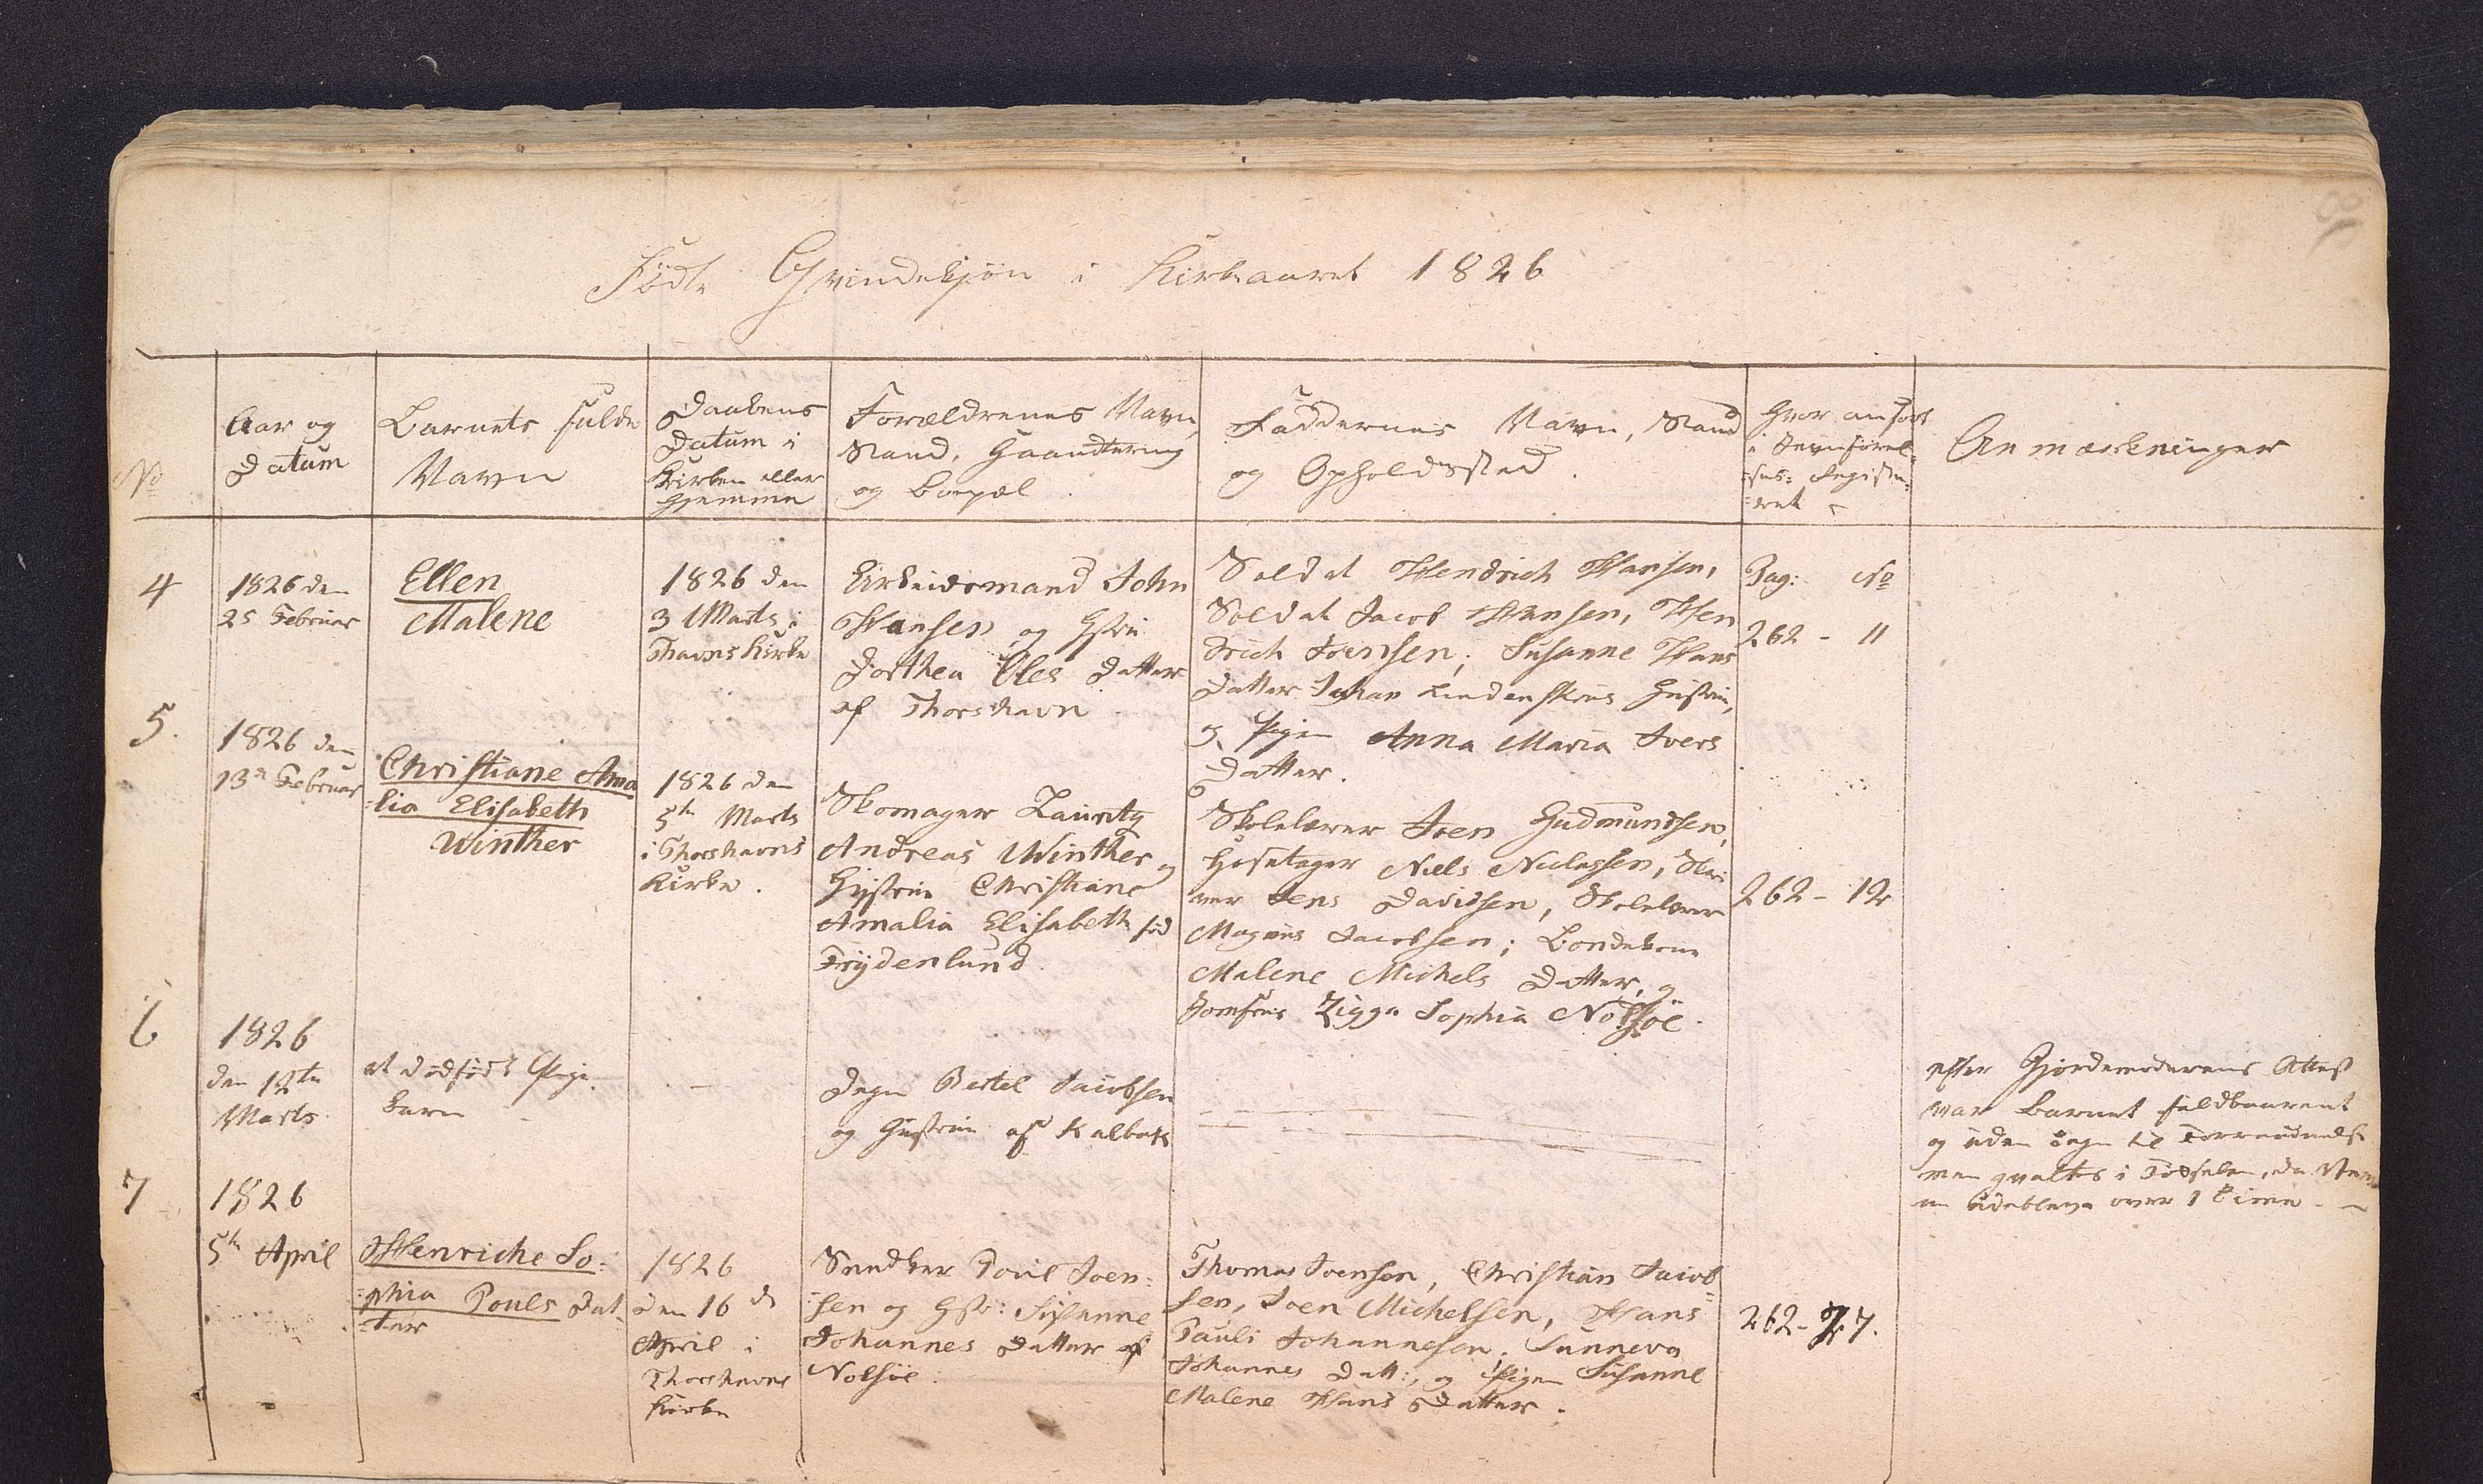 Födte Qvindekjön i Kirkeaaret 1826
No
Aar og
Datum
Barnets fulde
Navn
Daabens
Datum i
Kirken eller
Hjemme
Forældrenes Navn,
Stand, Haandtering
og Boepæl.
Faddernes Navn, Stand
og Opholdssted.
Hvor anført
i Jevnförel-
-ses: Registe-
-ret
Anmærkninger
4
1826 den
25 Februar
Ellen
Malene
1826 den
3 Marts i
Thavns Kirke
Arbeidsmand John
Hansen og Hstru
Dorthea Oles Datter
af Thorshavn
Soldat Hendrich Hansen,
Soldat Jacob Hansen, Hen
drich Joensen; Susanne Hans
Datter Johan Lindenskous Hustrue,
og Pigen Anna Maria Ivers
Datter.
Pag: No
262 - 11
5.
1826 den
13de Februar
Christiane Ama
-lia Elisabeth
Winther
1826 den
5te Marts
i Thorshavns
Kirke.
Skomager Lauritz
Andreas Winther og
Hustrue Christiane
Amalia Elisabeth föd
Frydenlund
Skolelærer Joen Gudmundsen,
Hosetager Niels Niclassen, Skri
ver Jens Davidsen, Skolelærer
Magnus Jacobsen; Bondekone
Malene Michels Datter, og
Jomfrue Zigga Sophia Nolsøe.
262 - 12
6
1826
den 12te
Marts
et dödfödt Pige
barn
Degn Bertel Jacobsen
og Hustrue af Kalbak
efter Gjordemoderens Attest
var Barnet fuldbaarent
og uden Tegn til Forraadnelse
men qvaltes i Födselen, da Veer
ne udebleve over 1 Time.
7
1826
5te April
Henriche So-
-phia Pouls Dat
-ter
1826
den 16 de
April i
Thorshavns
Kirke
Snedker Poul Joen-
-sen og Hstr: Susanne
Johannes Datter af
Nolsöe.
Thomas Joensen, Christian Jacob
sen, Joen Michelsen, Hans
Pauli Johannesen. Sunneva
Johannes Datt:, og Pigen Susanne
Malene Hans Datter.
262 - 7.